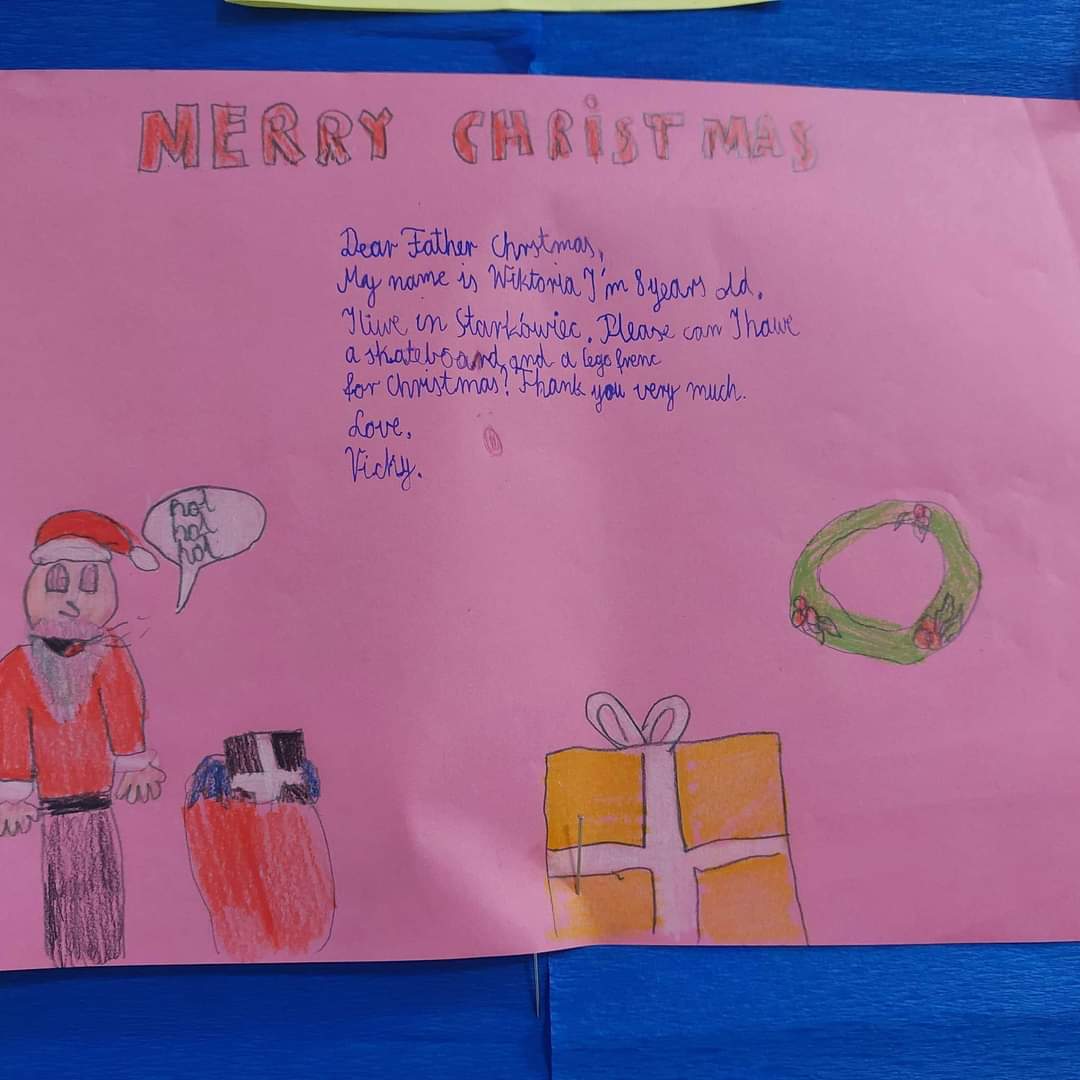 MERRY CHRiSTMAS
Dear Father Chrstmas,
My name is Wiktoria I'm 8 years old.
I live in Starkówiec. Please can I have
a skateboard and a lego frenc
for Christmas? Thank you very much.
Love,
Vicky.
ho!
ho!
ho!